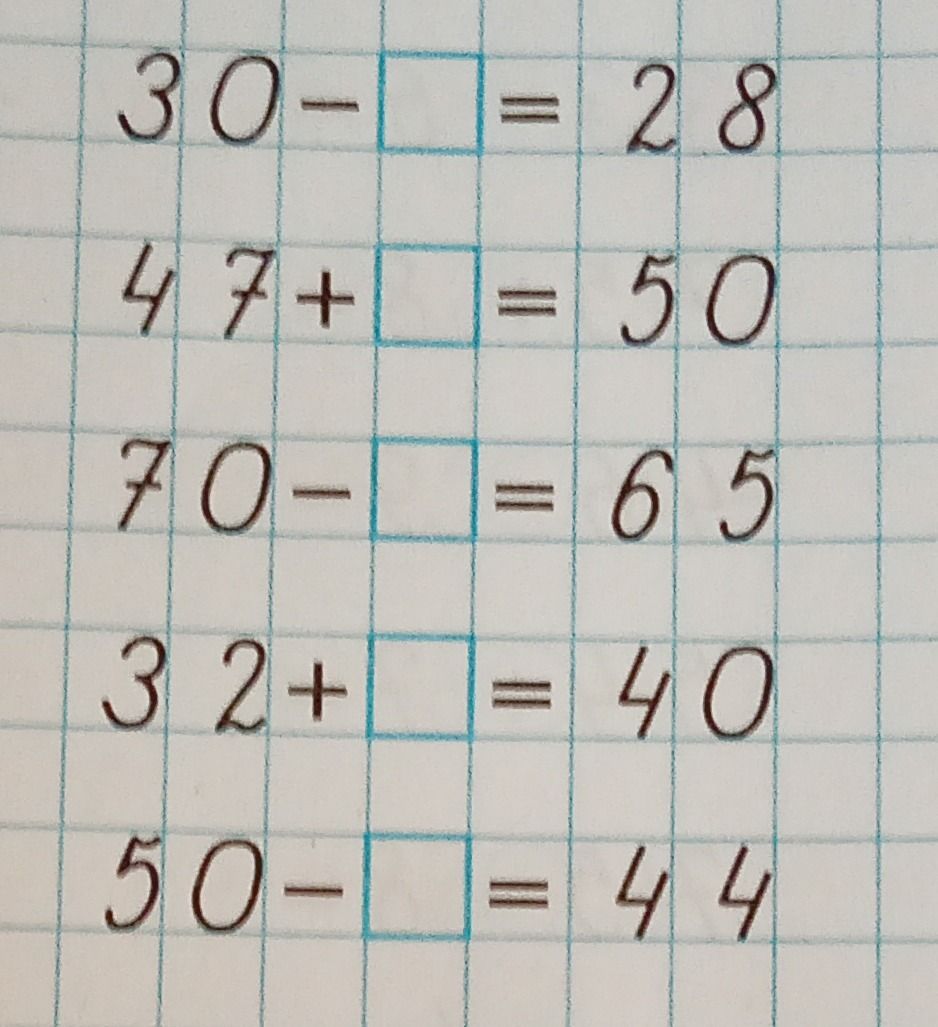 30 - □ = 28
47 + □ = 50
70 - □ = 65
32 + □ = 40
50 - □ = 44